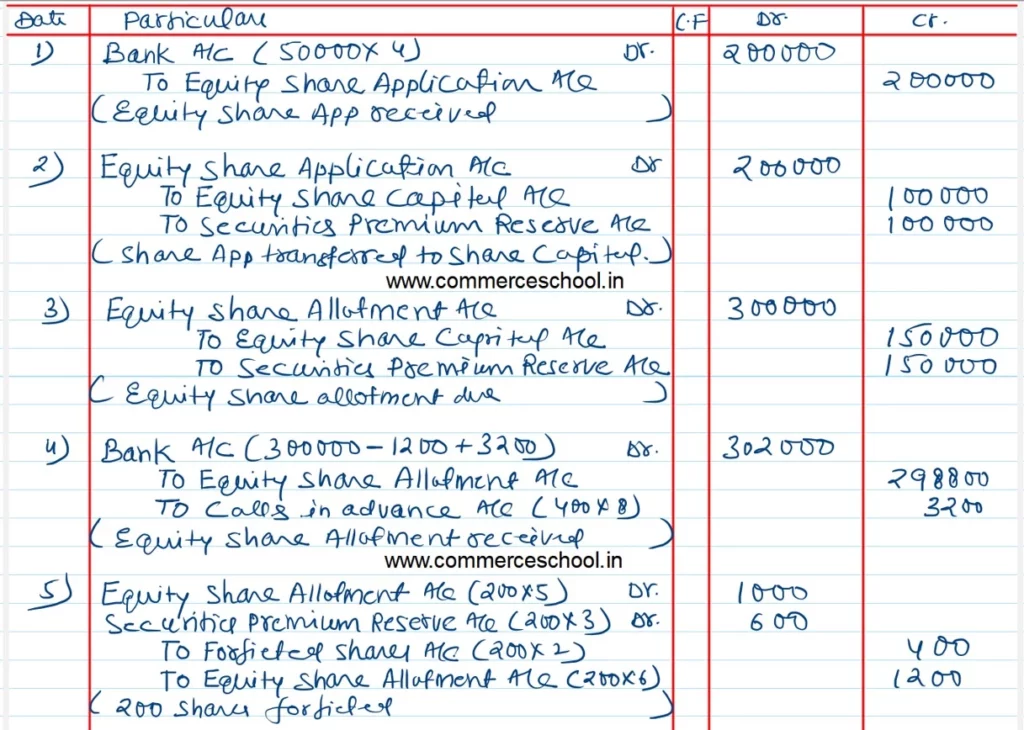 Date Particulars C.F Dr. Cr.
1) Bank A/C (50000x4) Dr. 200000
To Equity Share Application A/c 200000
(Equity Share App received)
2) Equity Share Application A/C Dr 200000
To Equity Share Capital A/c 100000
To Securities Premium Reserve A/c 100000
(Share App transferred to Share Capital.)
www.commerceschool.in
3) Equity Share Allotment A/c Dr. 300000
To Equity Share Capital A/c 150000
To Securities Premium Reserve A/c 150000
(Equity Share allotment due)
4) Bank A/C (300000-1200+3200) Dr. 302000
To Equity Share Allotment A/c 298800
To Calls in advance A/c (400x8) 3200
(Equity Share Allotment received)
www.commerceschool.in
5) Equity Share Allotment A/c (200x5) Dr. 1000
Securities Premium Reserve A/c (200x3) Dr. 600
To Forfieted Shares A/C (200x2) 400
To Equity Share Allotment A/c (200x6) 1200
(200 Shares forfieted)